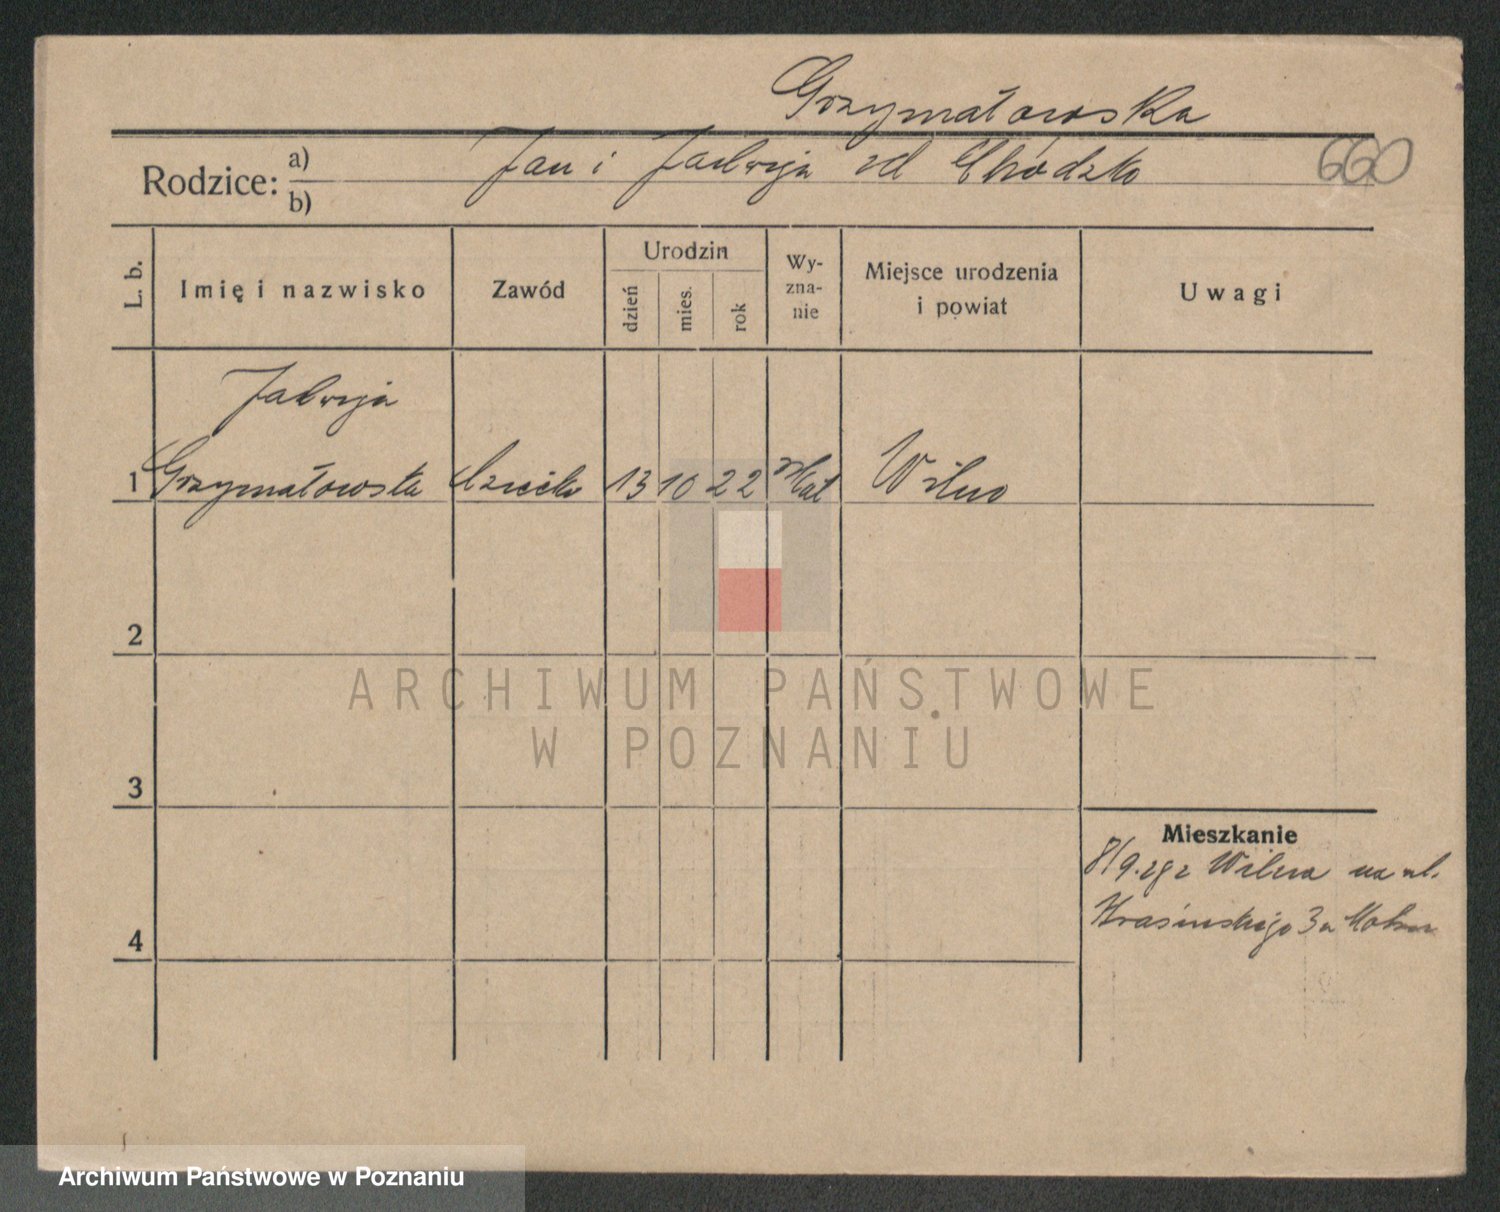 Grzymałowska
Rodzice: a) b) Jan i Jadwiga zd Chodzko
660
L. b.
Imię i nazwisko
Zawód
Urodzin
dzień
mies.
rok
Wy-
zna-
nie
Miejsce urodzenia
i powiat
Uwagi
Jadwiga
1 Grzymałowska dziecko 13 10 22 Wilno
2
3
4
Mieszkanie
8/9.28 z Wilna na ul.
Krasińskiego 3
ARCHIWUM PAŃSTWOWE
W POZNANIU
Archiwum Państwowe w Poznaniu